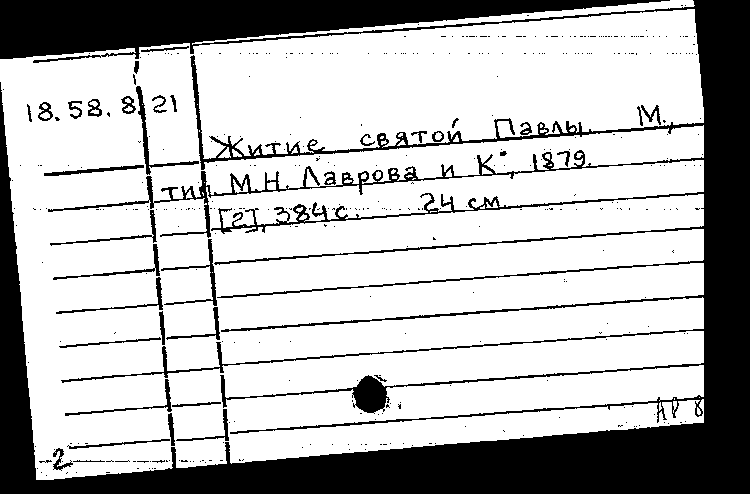 18.58.8.21
Житие святой Павлы. М.,
тип. М.Н. Лаврова и К°, 1879.
[2], 384 с. 24 см.
АР 8
2